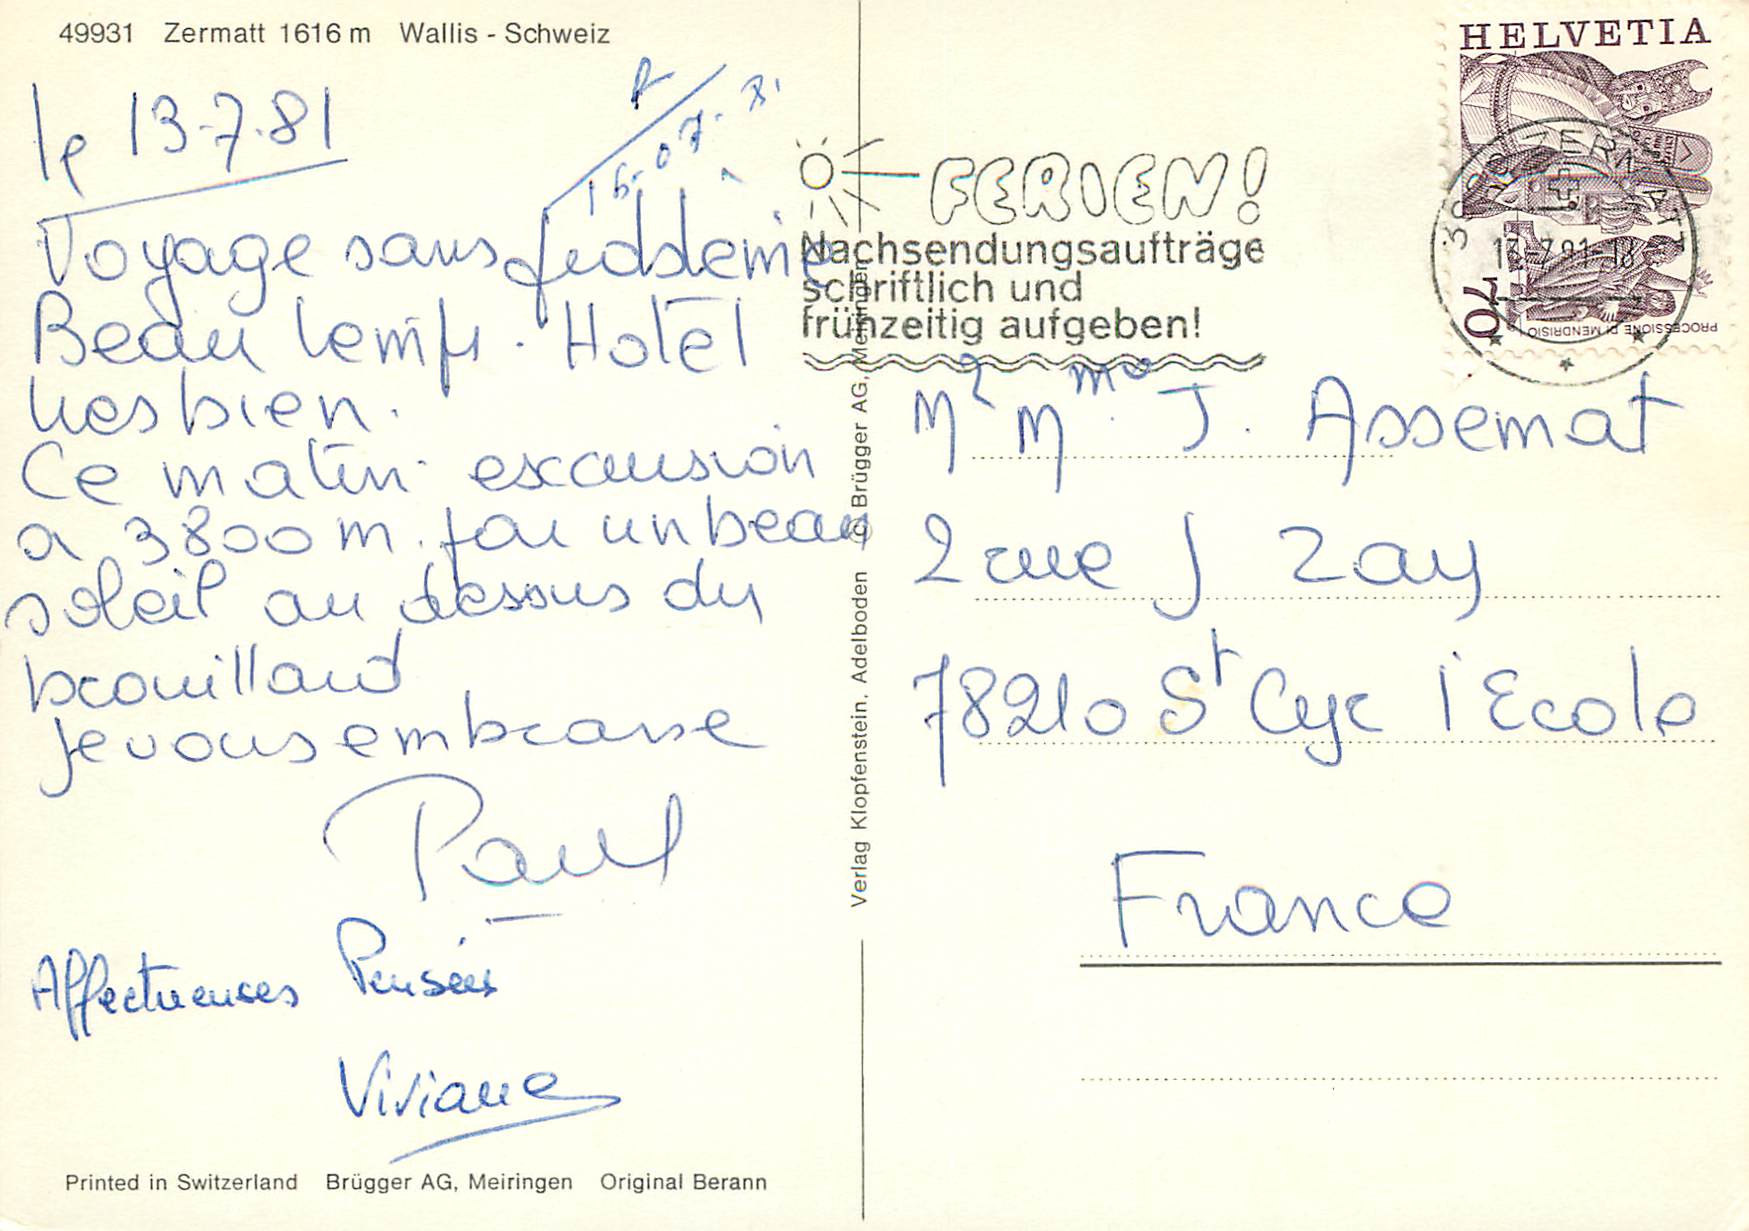 49931 Zermatt 1616 m Wallis - Schweiz
le 13-7-81
R
16.07.81
Voyage sans
Beau temps. Hotel
tres bien.
Ce matin excursion
a 3800 m. par un beau
soleil au dessus du
brouillard
Je vous embrasse
Paul
Affectueuses Pensées
Viviane
Printed in Switzerland Brügger AG, Meiringen Original Berann
Verlag Klopfenstein, Adelboden © Brügger AG, Meiringen
FERIEN!
Nachsendungsaufträge
schriftlich und
frühzeitig aufgeben!
HELVETIA
70
PROCESSIONE DI MENDRISIO
3920 ZERMATT
13.-7.81-18
Mr Mme J. Assemat
2 rue J Zay
78210 St Cyr l'Ecole
France